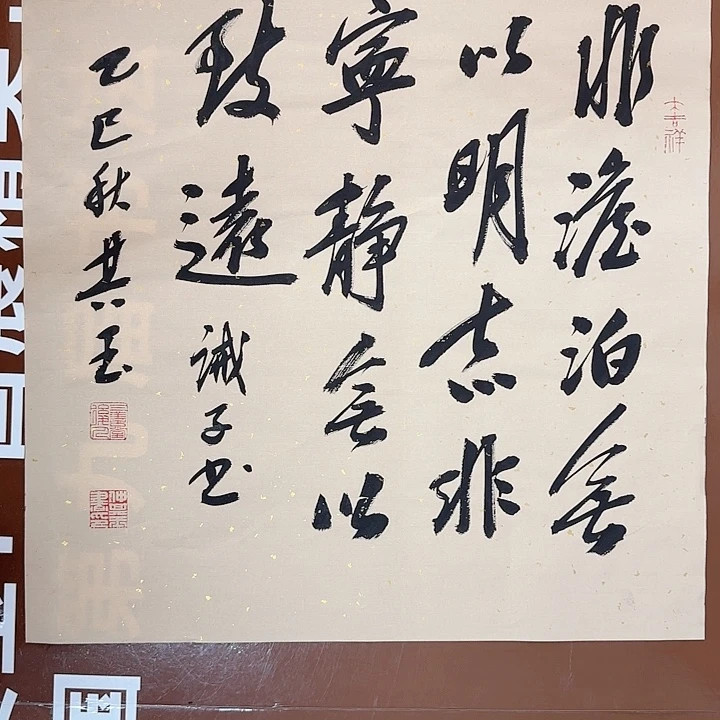 非澹泊無
以明志非
寧靜無以
致遠 誡子書
乙巳秋其玉
大吉祥